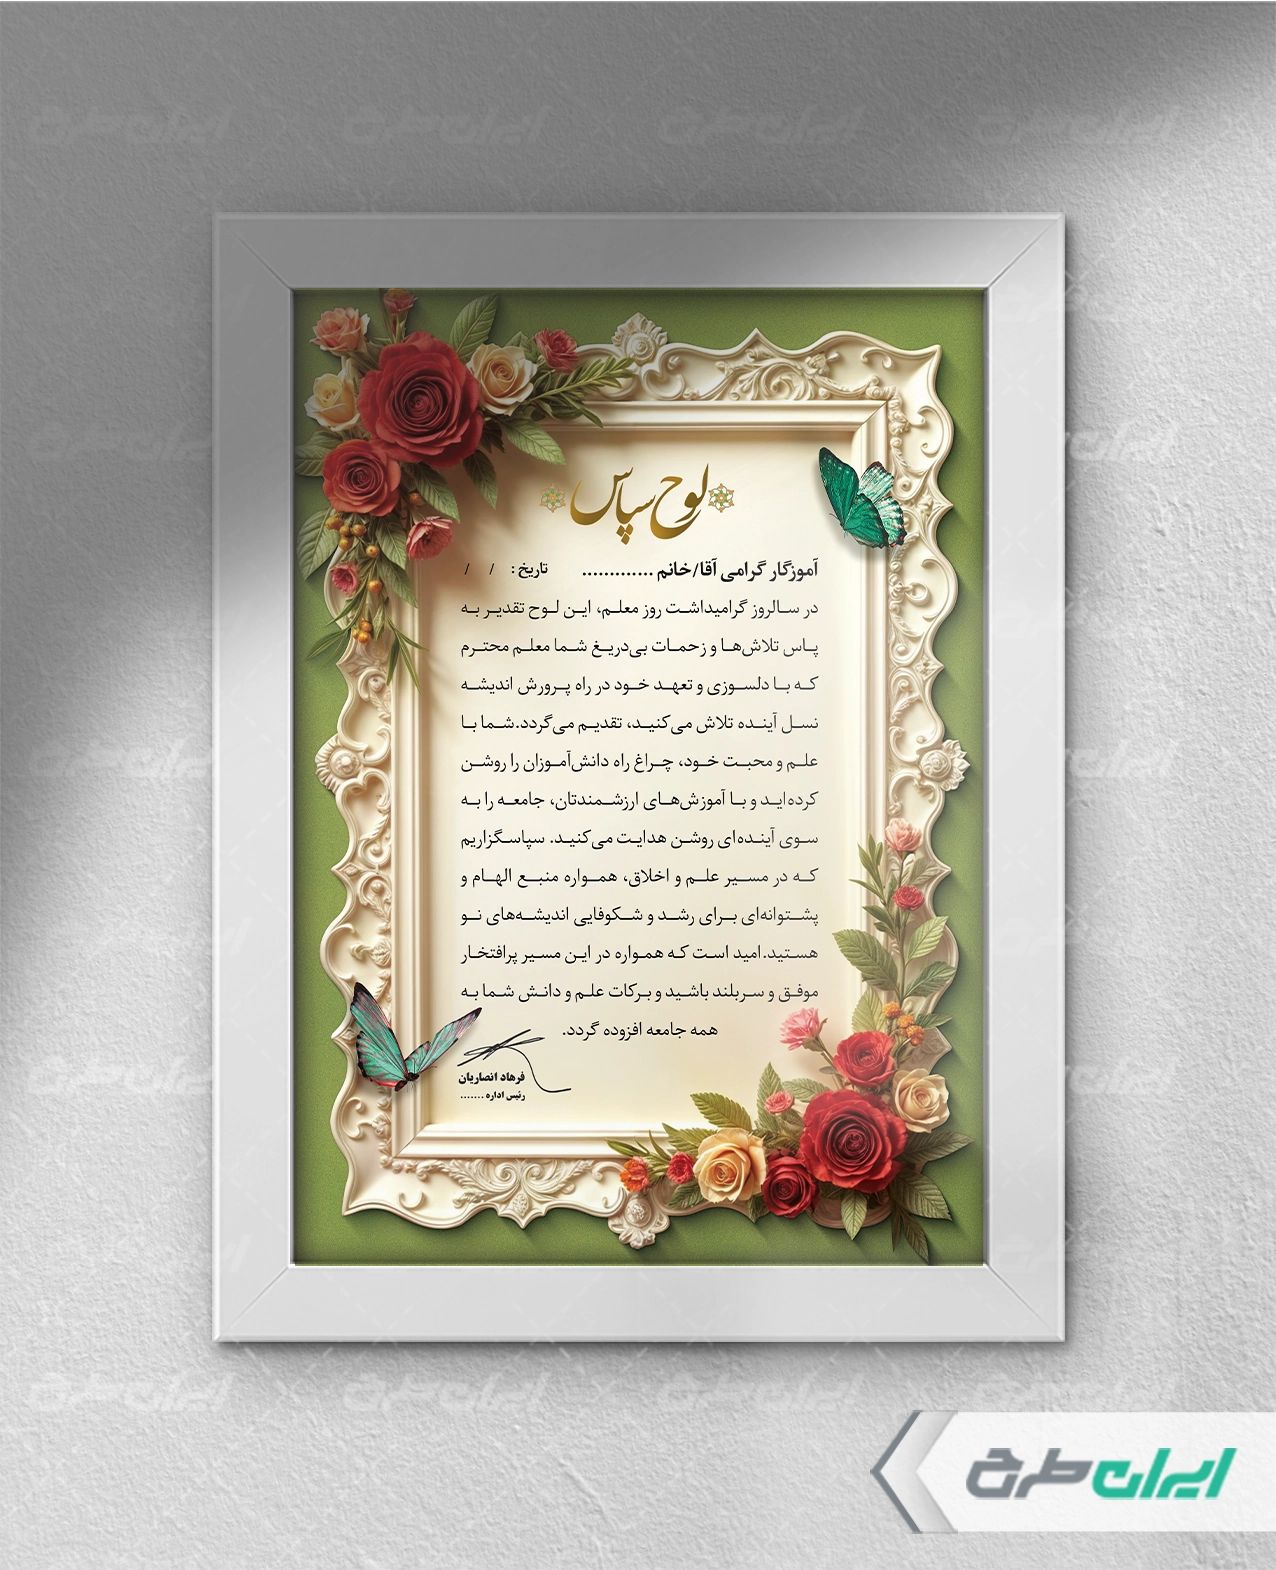 لوح سپاس
آموزگار گرامی آقا/خانم ............. تاریخ : / /
در سالروز گرامیداشت روز معلم، این لوح تقدیر به
پاس تلاش‌ها و زحمات بی‌دریغ شما معلم محترم
که با دلسوزی و تعهد خود در راه پرورش اندیشه
نسل آینده تلاش می‌کنید، تقدیم می‌گردد.شما با
علم و محبت خود، چراغ راه دانش‌آموزان را روشن
کرده‌اید و با آموزش‌های ارزشمندتان، جامعه را به
سوی آینده‌ای روشن هدایت می‌کنید. سپاسگزاریم
که در مسیر علم و اخلاق، همواره منبع الهام و
پشتوانه‌ای برای رشد و شکوفایی اندیشه‌های نو
هستید.امید است که همواره در این مسیر پرافتخار
موفق و سربلند باشید و برکات علم و دانش شما به
همه جامعه افزوده گردد.
فرهاد انصاریان
رئیس اداره .......
ایران طرح